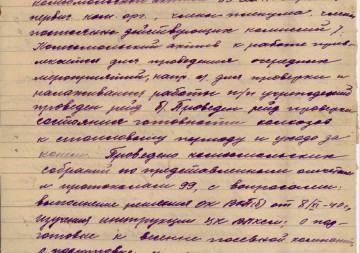 первич. ком. орг. члены пленума, члены
постоянно действующих комиссий).
Комсомольский актив к работе прив-
лекается для проведения очередных
мероприятий, напр. а) для проверки и
налаживания работы п/и учреждений
проведен рейд б) Проведен рейд проверки
состояния готовности колхозов
к стойловому периоду и ухода за
конем. Проведено комсомольских
собраний по представленным отчетам
и протоколам 99, с вопросами:
выполнение решения ОК ВКП(б) от 8/II-40г.,
изучения инструкции ЦК ВЛКСМ; о под-
готовке к весенне посевной кампании
о подготовке